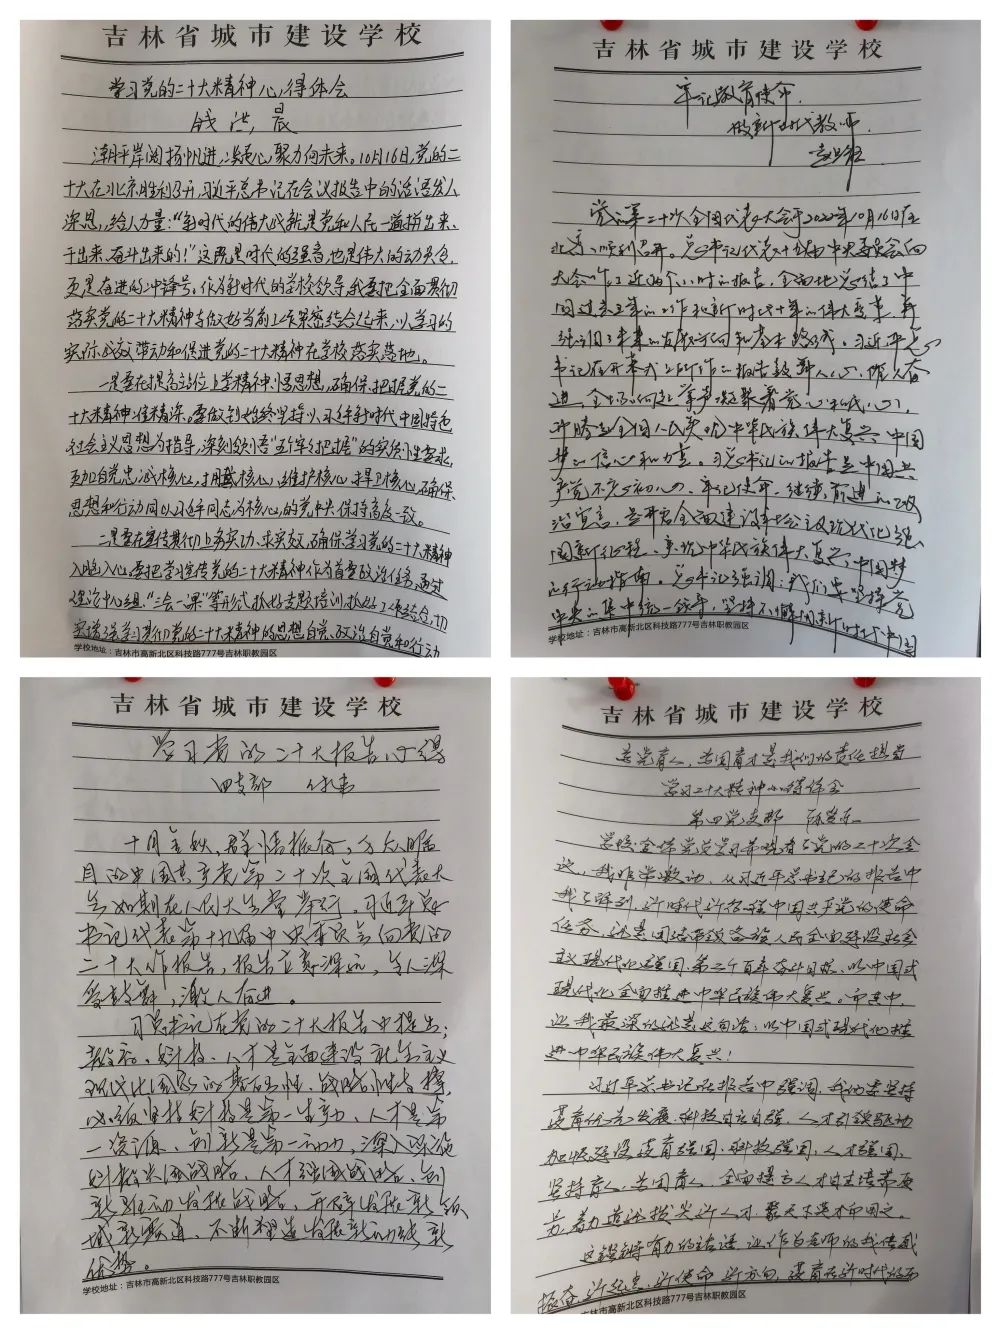 吉林省城市建设学校
学习党的二十大精神心得体会
钱洪晨
潮平岸阔扬帆进,凝心聚力向未来。10月16日,党的二
十大在北京胜利召开,习近平总书记在会议报告中的话语发人
深思,给人力量:“新时代的伟大成就是党和人民一道拼出来、
干出来、奋斗出来的!”这既是时代的强音也是伟大的动员令,
更是奋进的冲锋号。作为新时代的学校领导,我要把全面贯彻
落实党的二十大精神与做好当前工作紧密结合起来,以学习的
实际成效带动和促进党的二十大精神在学校落实落地。
一是要在提高站位上学精神、悟思想,确保把握党的二
十大精神准精深。要做到始终坚持以习近平新时代中国特色
社会主义思想为指导,深刻领悟“五个牢牢把握”的实质性要求,
更加自觉忠诚核心、拥戴核心、维护核心、捍卫核心,确保
思想和行动同以习近平同志为核心的党中央保持高度一致。
二是要在宣传贯彻上务实功、求实效,确保学习党的二十大精神
入脑入心。要把学习宣传党的二十大精神作为首要政治任务,通过
理论中心组、“三会一课”等形式,抓好专题培训,抓好工作结合,切
实增强学习贯彻党的二十大精神的思想自觉、政治自觉和行动
学校地址：吉林市高新北区科技路777号吉林职教园区
吉林省城市建设学校
牢记教育使命
做新时代教师
党的第二十次全国代表大会于2022年10月16日在
北京顺利召开。总书记代表十九届中央委员会向
大会作了近两个小时的报告,全面地总结了中
国过去五年的工作和新时代十年的伟大变革,并
强调了未来的发展方向和基本路线。习近平总
书记在开幕式上所作的报告鼓舞人心,催人奋
进,全场何起掌声凝聚着党心和民心,
开阔出全国人民实现中华民族伟大复兴中国
梦的信心和力量。习总书记的报告是中国共
产党不忘初心、牢记使命、继续前进的政
治宣言,是开启全面建设社会主义现代化强
国新征程、实现中华民族伟大复兴中国梦
的行动指南。总书记强调:我们要坚持党
中央的集中统一领导,坚持不懈用新时代中国
学校地址：吉林市高新北区科技路777号吉林职教园区
吉林省城市建设学校
学习党的二十大报告心得
四支部
十月金秋,群情振奋,万众瞩
目的中国共产党第二十次全国代表大
会如期在人民大会堂举行。习近平总
书记代表第十九届中央委员会向党的
二十大作报告,报告立意深远,令人深
受鼓舞,激人奋进。
习总书记在党的二十大报告中提出:
教育、科技、人才是全面建设社会主义
现代化国家的基础性、战略性支撑,
必须坚持科技是第一生产力、人才是第
一资源、创新是第一动力,深入实施
科教兴国战略、人才强国战略、创
新驱动发展战略,开辟发展新领
域新赛道,不断塑造发展新动能新
优势。
学校地址：吉林市高新北区科技路777号吉林职教园区
吉林省城市建设学校
为党育人、为国育才是我们的责任担当
学习二十大精神心得体会
第四党支部
学校全体党员学习并观看了党的二十次会
议,我非常激动,从习近平总书记的报告中
我了解到,新时代新征程中国共产党的使命
任务,就是团结带领各族人民全面建设社会
主义现代化强国、第二个百年奋斗目标,以中国式
现代化全面推进中华民族伟大复兴。而其中
让我最深的就是这句话:以中国式现代化推
进中华民族伟大复兴!
习近平总书记在报告中强调,我们要坚持
教育优先发展、科技自立自强、人才引领驱动,
加快建设教育强国、科技强国、人才强国,
坚持育人、为国育人,全面提高人才自主培养质
量,着力造就拔尖新人才,聚天下英才而用之。
这铿锵有力的话语,让作为老师的我倍感
振奋,新起点、新使命、新方向,教育在新时代的
吉林市高新北区科技路777号吉林职教园区